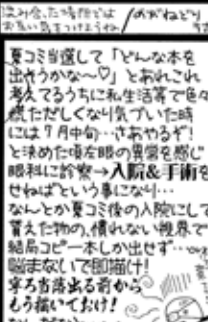 混み合った場所では
お互い気をつけようね
めがねどり
夏コミ当選して「どんな本を
出そうかな~♡」とあれこれ
考えてるうちに私生活等で色々
慌ただしくなり気づいた時
には7月中旬…さあやるぞ!
と決めた頃左眼の異常を感じ
眼科に診察→入院&手術を
せねばという事になり…
なんとか夏コミ後の入院にして
貰えた物の、慣れない視界で
結局コピー本しか出せず…
悩まないで即描け!
寧ろ当落出る前から
もう描いておけ!